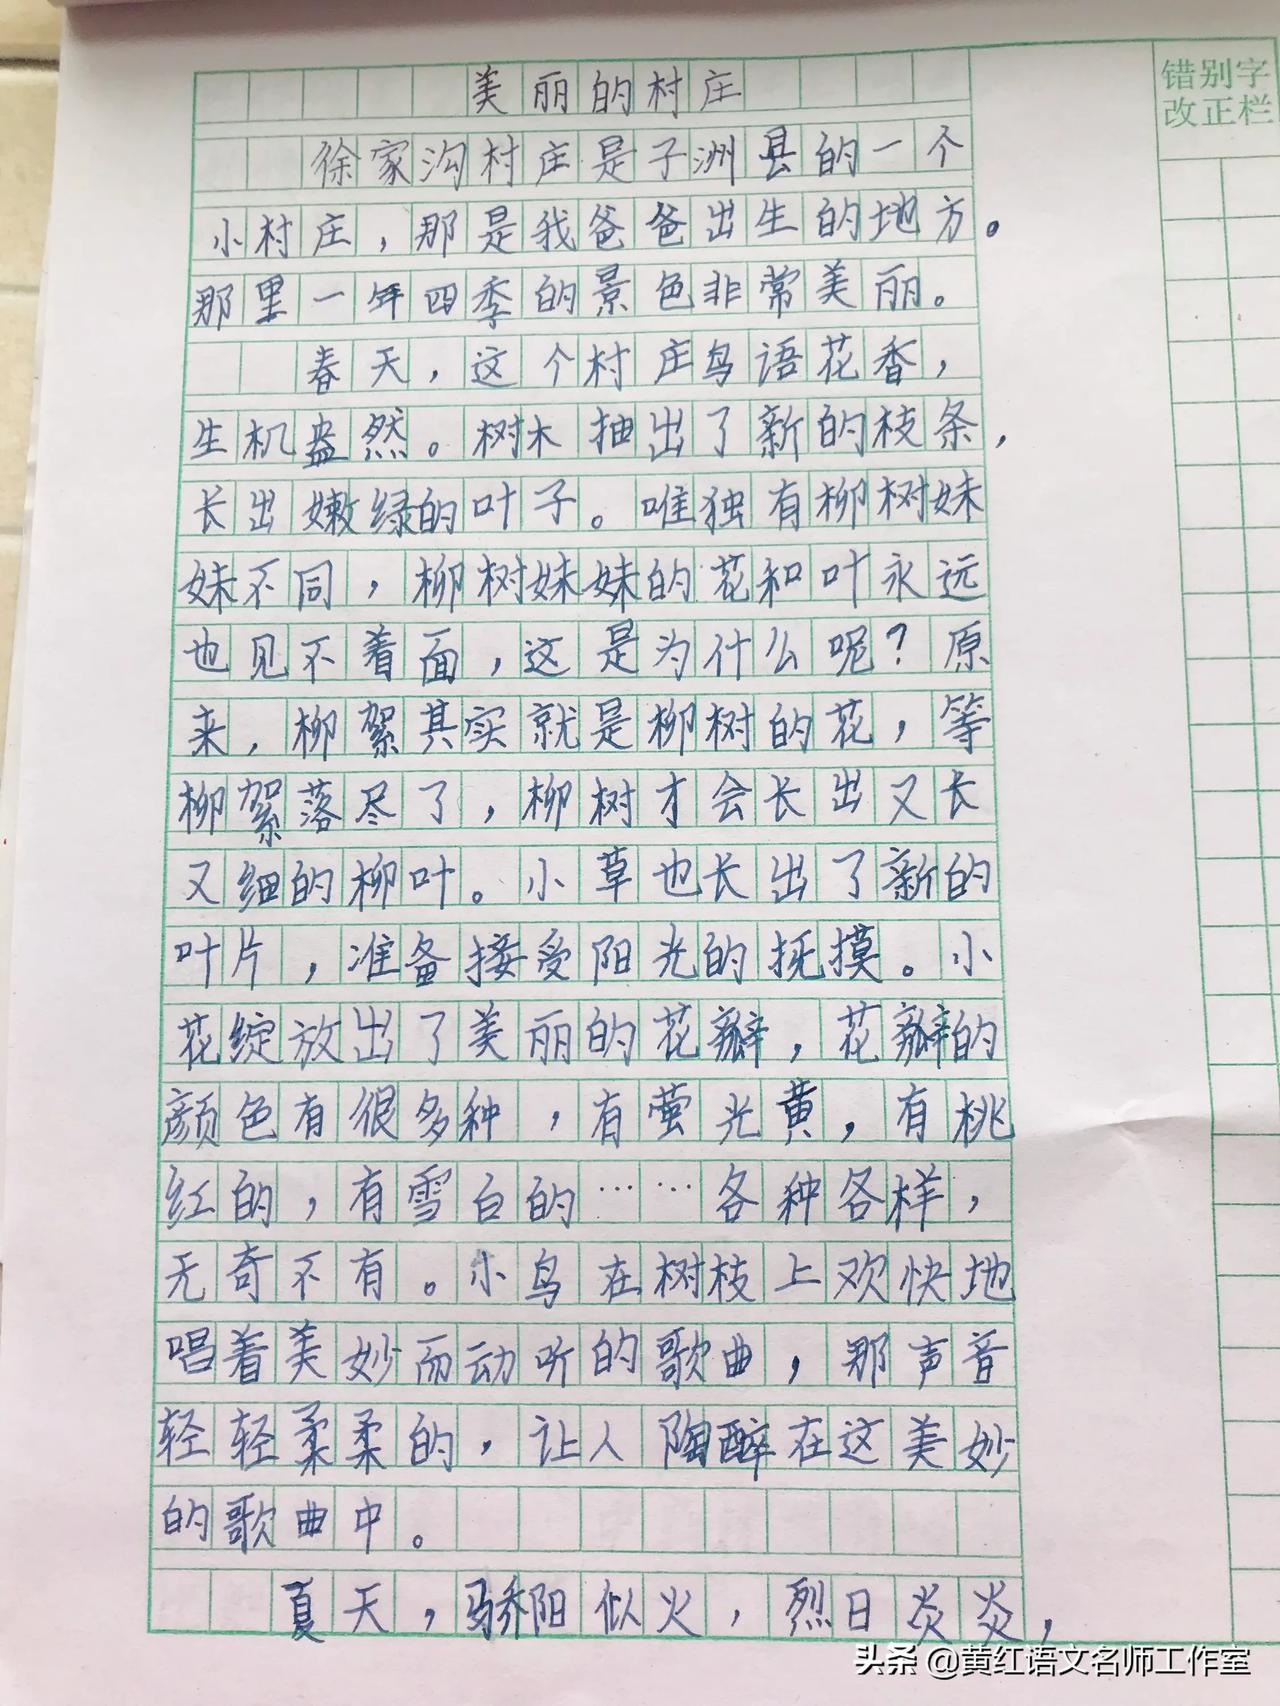 错别字
改正栏
美丽的村庄
徐家沟村庄是子洲县的一个
小村庄，那是我爸爸出生的地方。
那里一年四季的景色非常美丽。
春天，这个村庄鸟语花香，
生机盎然。树木抽出了新的枝条，
长出嫩绿的叶子。唯独有柳树妹
妹不同，柳树妹妹的花和叶永远
也见不着面，这是为什么呢？原
来，柳絮其实就是柳树的花，等
柳絮落尽了，柳树才会长出又长
又细的柳叶。小草也长出了新的
叶片，准备接受阳光的抚摸。小
花绽放出了美丽的花瓣，花瓣的
颜色有很多种，有萤光黄，有桃
红的，有雪白的……各种各样，
无奇不有。小鸟在树枝上欢快地
唱着美妙而动听的歌曲，那声音
轻轻柔柔的，让人陶醉在这美妙
的歌曲中。
夏天，骄阳似火，烈日炎炎，
头条 @黄红语文名师工作室